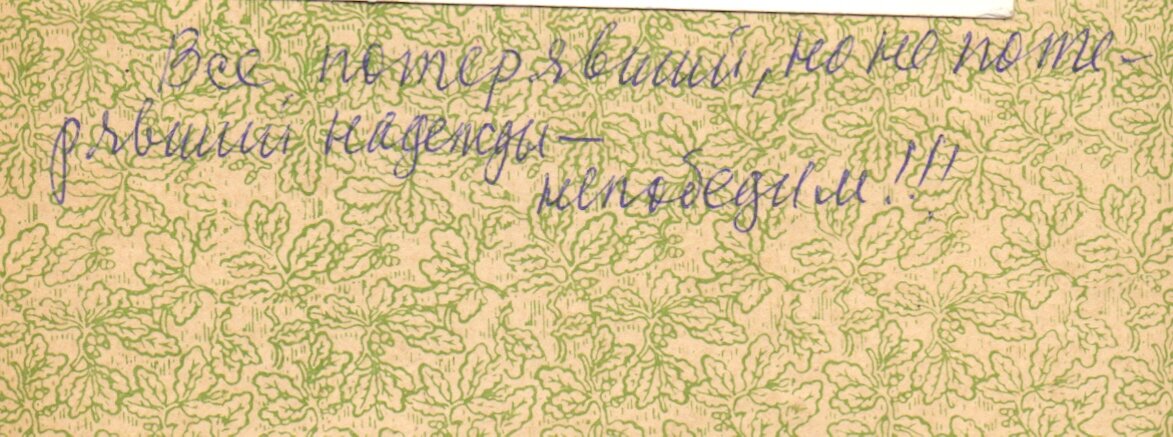 Все потерявший, но не поте-
рявший надежды —
непобедим!!!